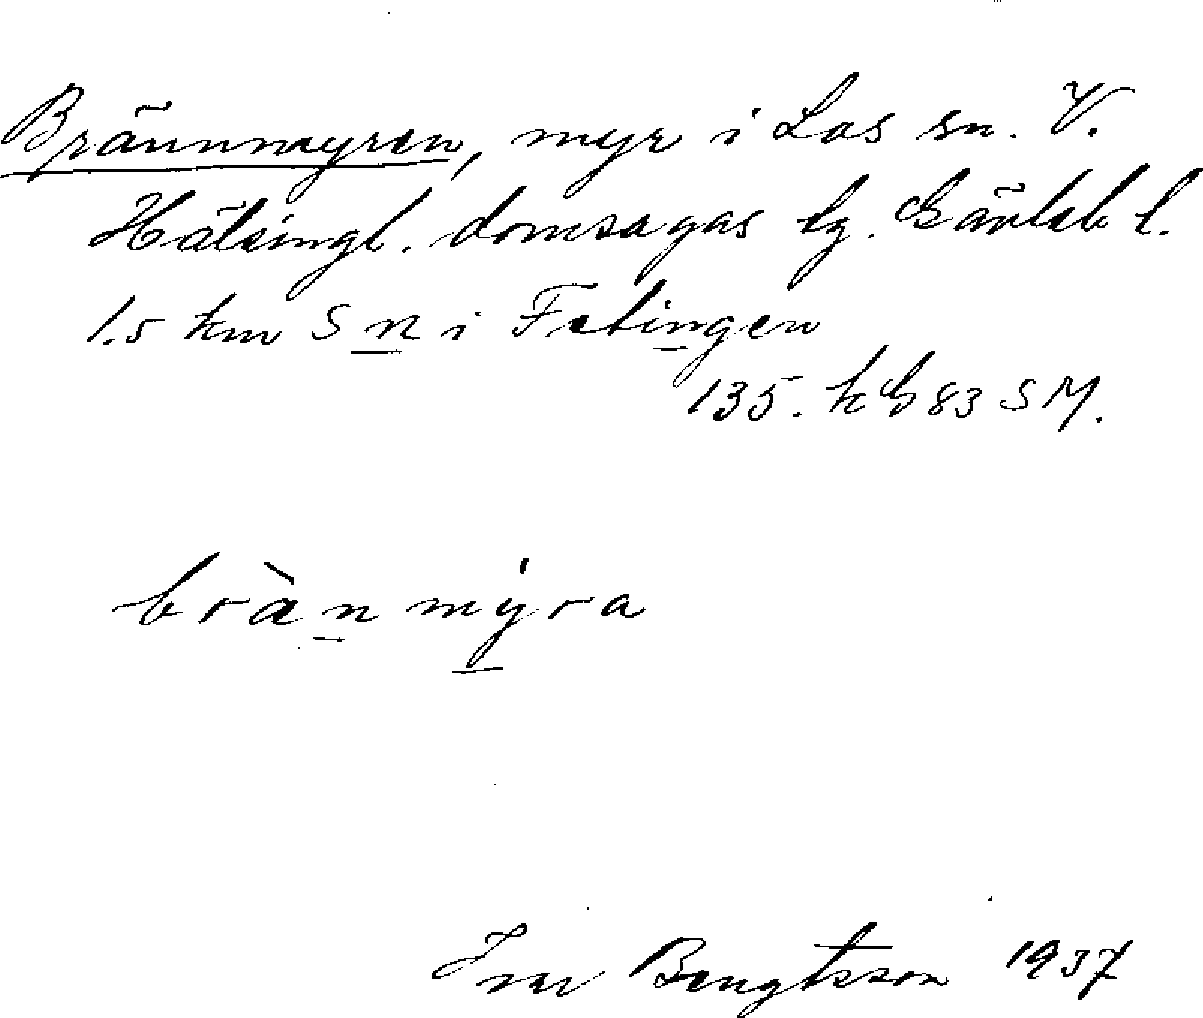 Brännmyren, myr i Los sn. V.
Hälsingl. domsagas tg. Gävleb l.
1.5 km S n i Fetingen
135. kb 83 SM.
brànmýra
Ivar Bengtsson 1937